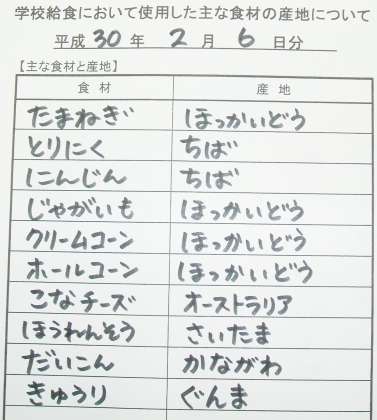 学校給食において使用した主な食材の産地について
平成 30 年 2 月 6 日分
【主な食材と産地】
食材 産地
たまねぎ ほっかいどう
とりにく ちば
にんじん ちば
じゃがいも ほっかいどう
クリームコーン ほっかいどう
ホールコーン ほっかいどう
こなチーズ オーストラリア
ほうれんそう さいたま
だいこん かながわ
きゅうり ぐんま